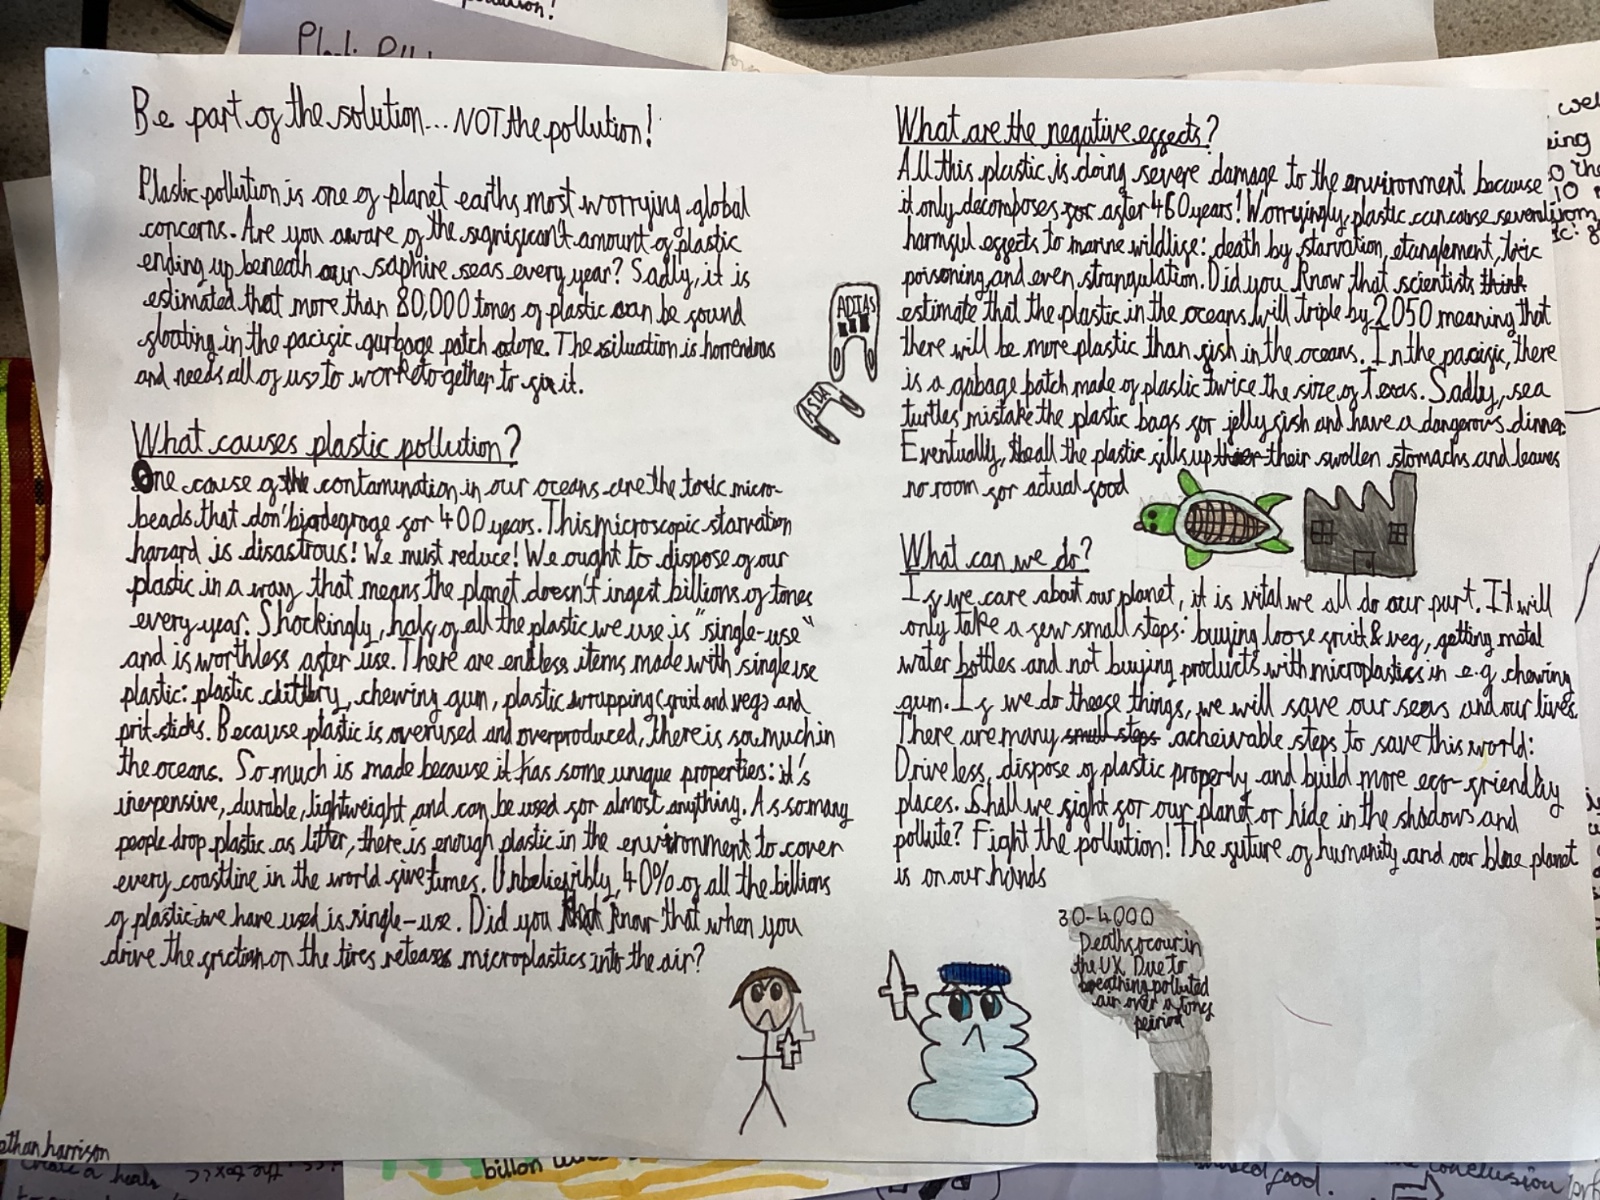 Be part of the solution... NOT the pollution!
Plastic pollution is one of planet earths most worrying global
concerns. Are you aware of the significant amount of plastic
ending up beneath our saphire seas every year? Sadly, it is
estimated that more than 80,000 tones of plastic can be found
floating in the pacific garbage patch alone. The situation is horrendous
and needs all of us to work together to fix it.
What causes plastic pollution?
One cause of the contamination in our oceans are the toxic micro-
beads that don't biodegrage for 400 years. This microscopic starvation
hazard is disastrous! We must reduce! We ought to dispose of our
plastic in a way that means the planet doesn't ingest billions of tones
every year. Shockingly, half of all the plastic we use is "single-use"
and is worthless after use. There are endless items made with single use
plastic: plastic, chewing gum, plastic wrapping (fruit and veg) and
prit sticks. Because plastic is overused and overproduced, there is so much in
the oceans. So much is made because it has some unique properties: it's
inexpensive, durable, lightweight and can be used for almost anything. As so many
people drop plastic as litter, there is enough plastic in the environment to cover
every coastline in the world five times. Unbelievibly, 40% of all the billions
of plastic we have used is single-use. Did you know that when you
drive the friction on the tires releases microplastics into the air?
ADIAS
ASDA
What are the negative effects?
All this plastic is doing severe damage to the environment because
it only decomposes for after 460 years! Worryingly, plastic can cause several
harmful effects to marine wildlife: death by starvation, etanglement, toxic
poisoning and even strangulation. Did you know that scientists think
estimate that the plastic in the oceans will triple by 2050 meaning that
there will be more plastic than fish in the oceans. In the pacific, there
is a gabage patch made of plastic twice the size of Texas. Sadly, sea
turtles mistake the plastic bags for jelly fish and have a dangerous dinner.
Eventually, all the plastic fills up their their swollen stomachs and leaves
no room for actual food
What can we do?
If we care about our planet, it is vital we all do our part. It will
only take a few small steps: buying loose fruit & veg, getting metal
water bottles and not buying products with microplastics in e.g. chewing
gum. If we do theese things, we will save our seas and our lives.
There are many small steps acheivable steps to save this world:
Drive less, dispose of plastic properly and build more eco-friendly
places. Shall we fight for our planet or hide in the shadows and
pollute? Fight the pollution! The future of humanity and our blue planet
is on our hands
30-4000
Deaths occur in
the UK Due to
breathing polluted
air over a long
peiriod
ethan harrison
create a
billon
food.
conclusion